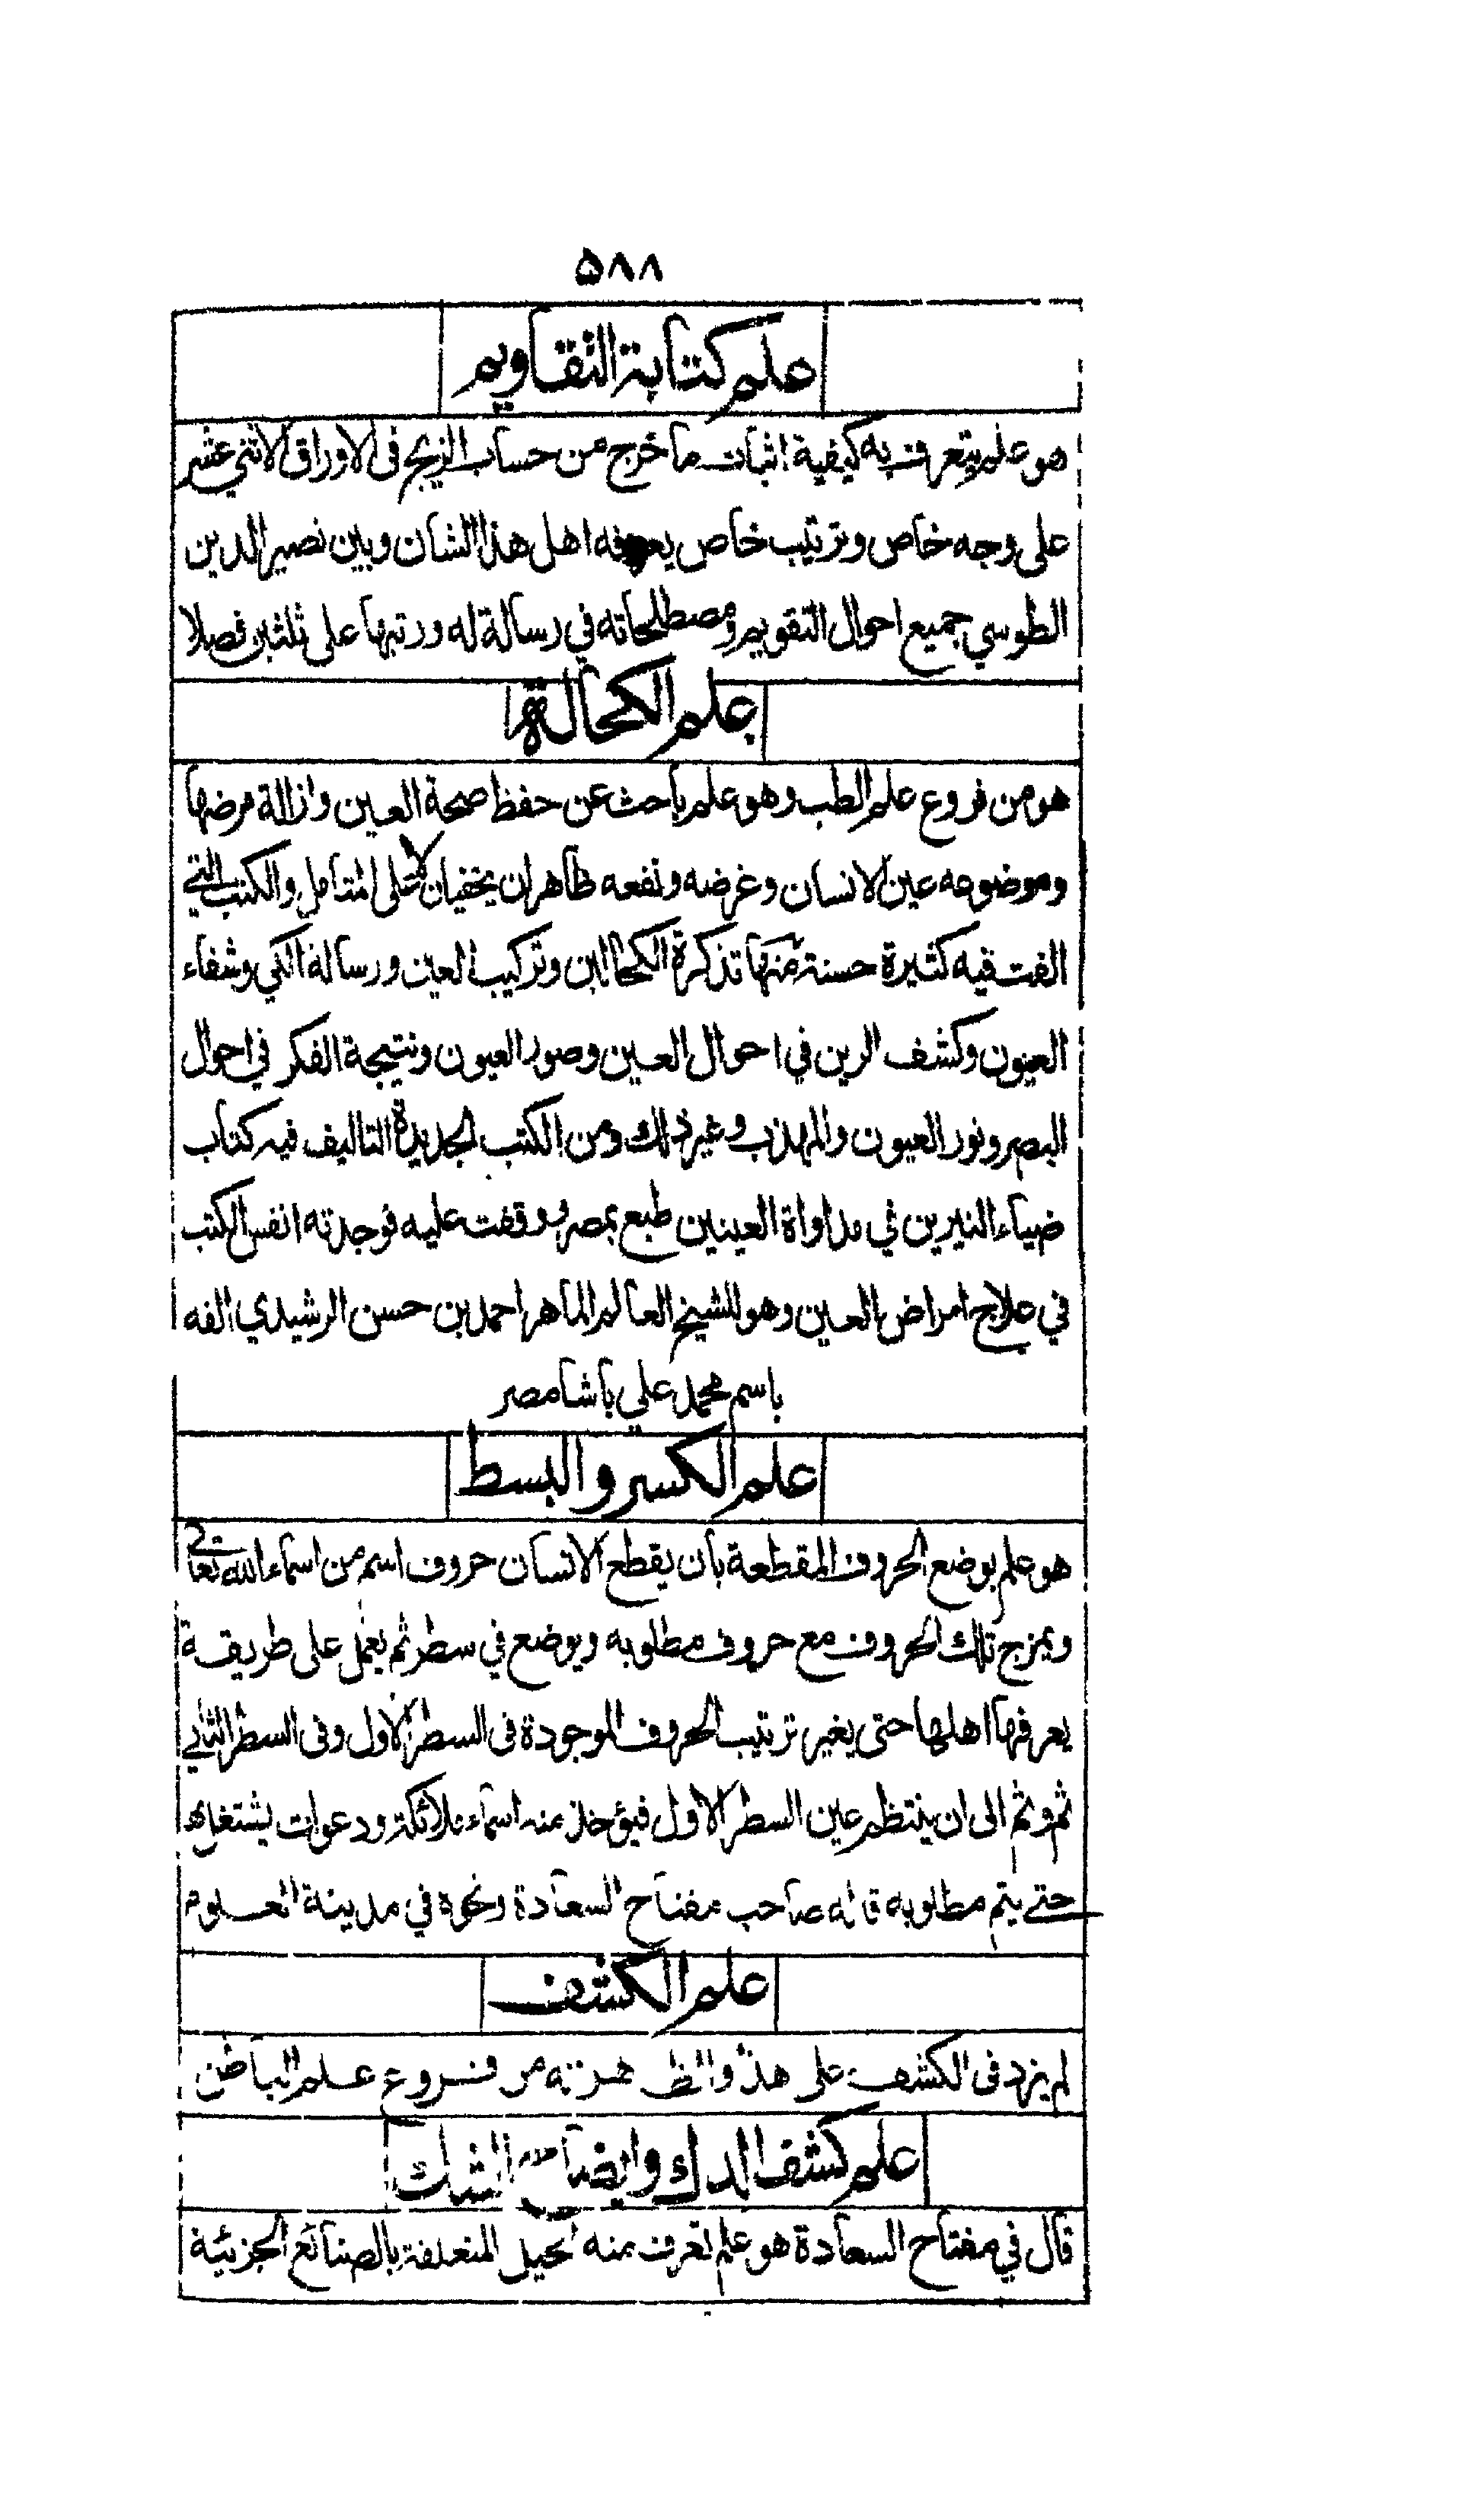 ۵۸۸
علم كتابة التقاويم
هو علم يتعرف به كيفية اثبات ما خرج من حساب الزيج فى الاوراق الاثني عشر
على وجه خاص وترتيب خاص يعرفه اهل هذا الشان وبين نصير الدين
الطوسي جميع احوال التقويم ومصطلحاته في رسالة له ورتبها على ثلثين فصلا
علم الكحالة
هو من فروع علم الطب وهو علم باحث عن حفظ صحة العين وازالة مرضها
وموضوعه عين الانسان وغرضه ونفعه ظاهران لا يخفيان على المتامل والكتب التي
الفت فيه كثيرة حسنة منها تذكرة الكحالين وتركيب العين ورسالة الكي وشفاء
العيون وكشف الرين في احوال العين وصور العيون ونتيجة الفكر في احوال
البصر ونور العيون والمهذب وغير ذلك ومن الكتب الجديدة التاليف فيه كتاب
ضياء النيرين في مداواة العينين طبع بمصر ووقفت عليه فوجدته انفس الكتب
في علاج امراض العين وهو للشيخ العالم الماهر احمد بن حسن الرشيدي الفه
باسم محمد علي باشا مصر
علم الكسر والبسط
هو علم بوضع الحروف المقطعة بان يقطع الانسان حروف اسم من اسماء الله تعالى
ويمزج تلك الحروف مع حروف مطلوبه ويوضع في سطر ثم يعمل على طريقة
يعرفها اهلها حتى يغير ترتيب الحروف الموجودة فى السطر الاول وفى السطر الثاني
ثم وثم الى ان ينتظم عين السطر الاول فيؤخذ منه اسماء ملائكة ودعوات يشتغل بها
حتى يتم مطلوبه قاله صاحب مفتاح السعادة ونحوه في مدينة العلوم
علم الكشف
لم يزد فى الكشف على هذا والظاهر انه من فروع علم الباطن
علم كشف الدك وايضاح الشك
قال في مفتاح السعادة هو علم تعرف منه الحيل المتعلقة بالصنائع الجزئية